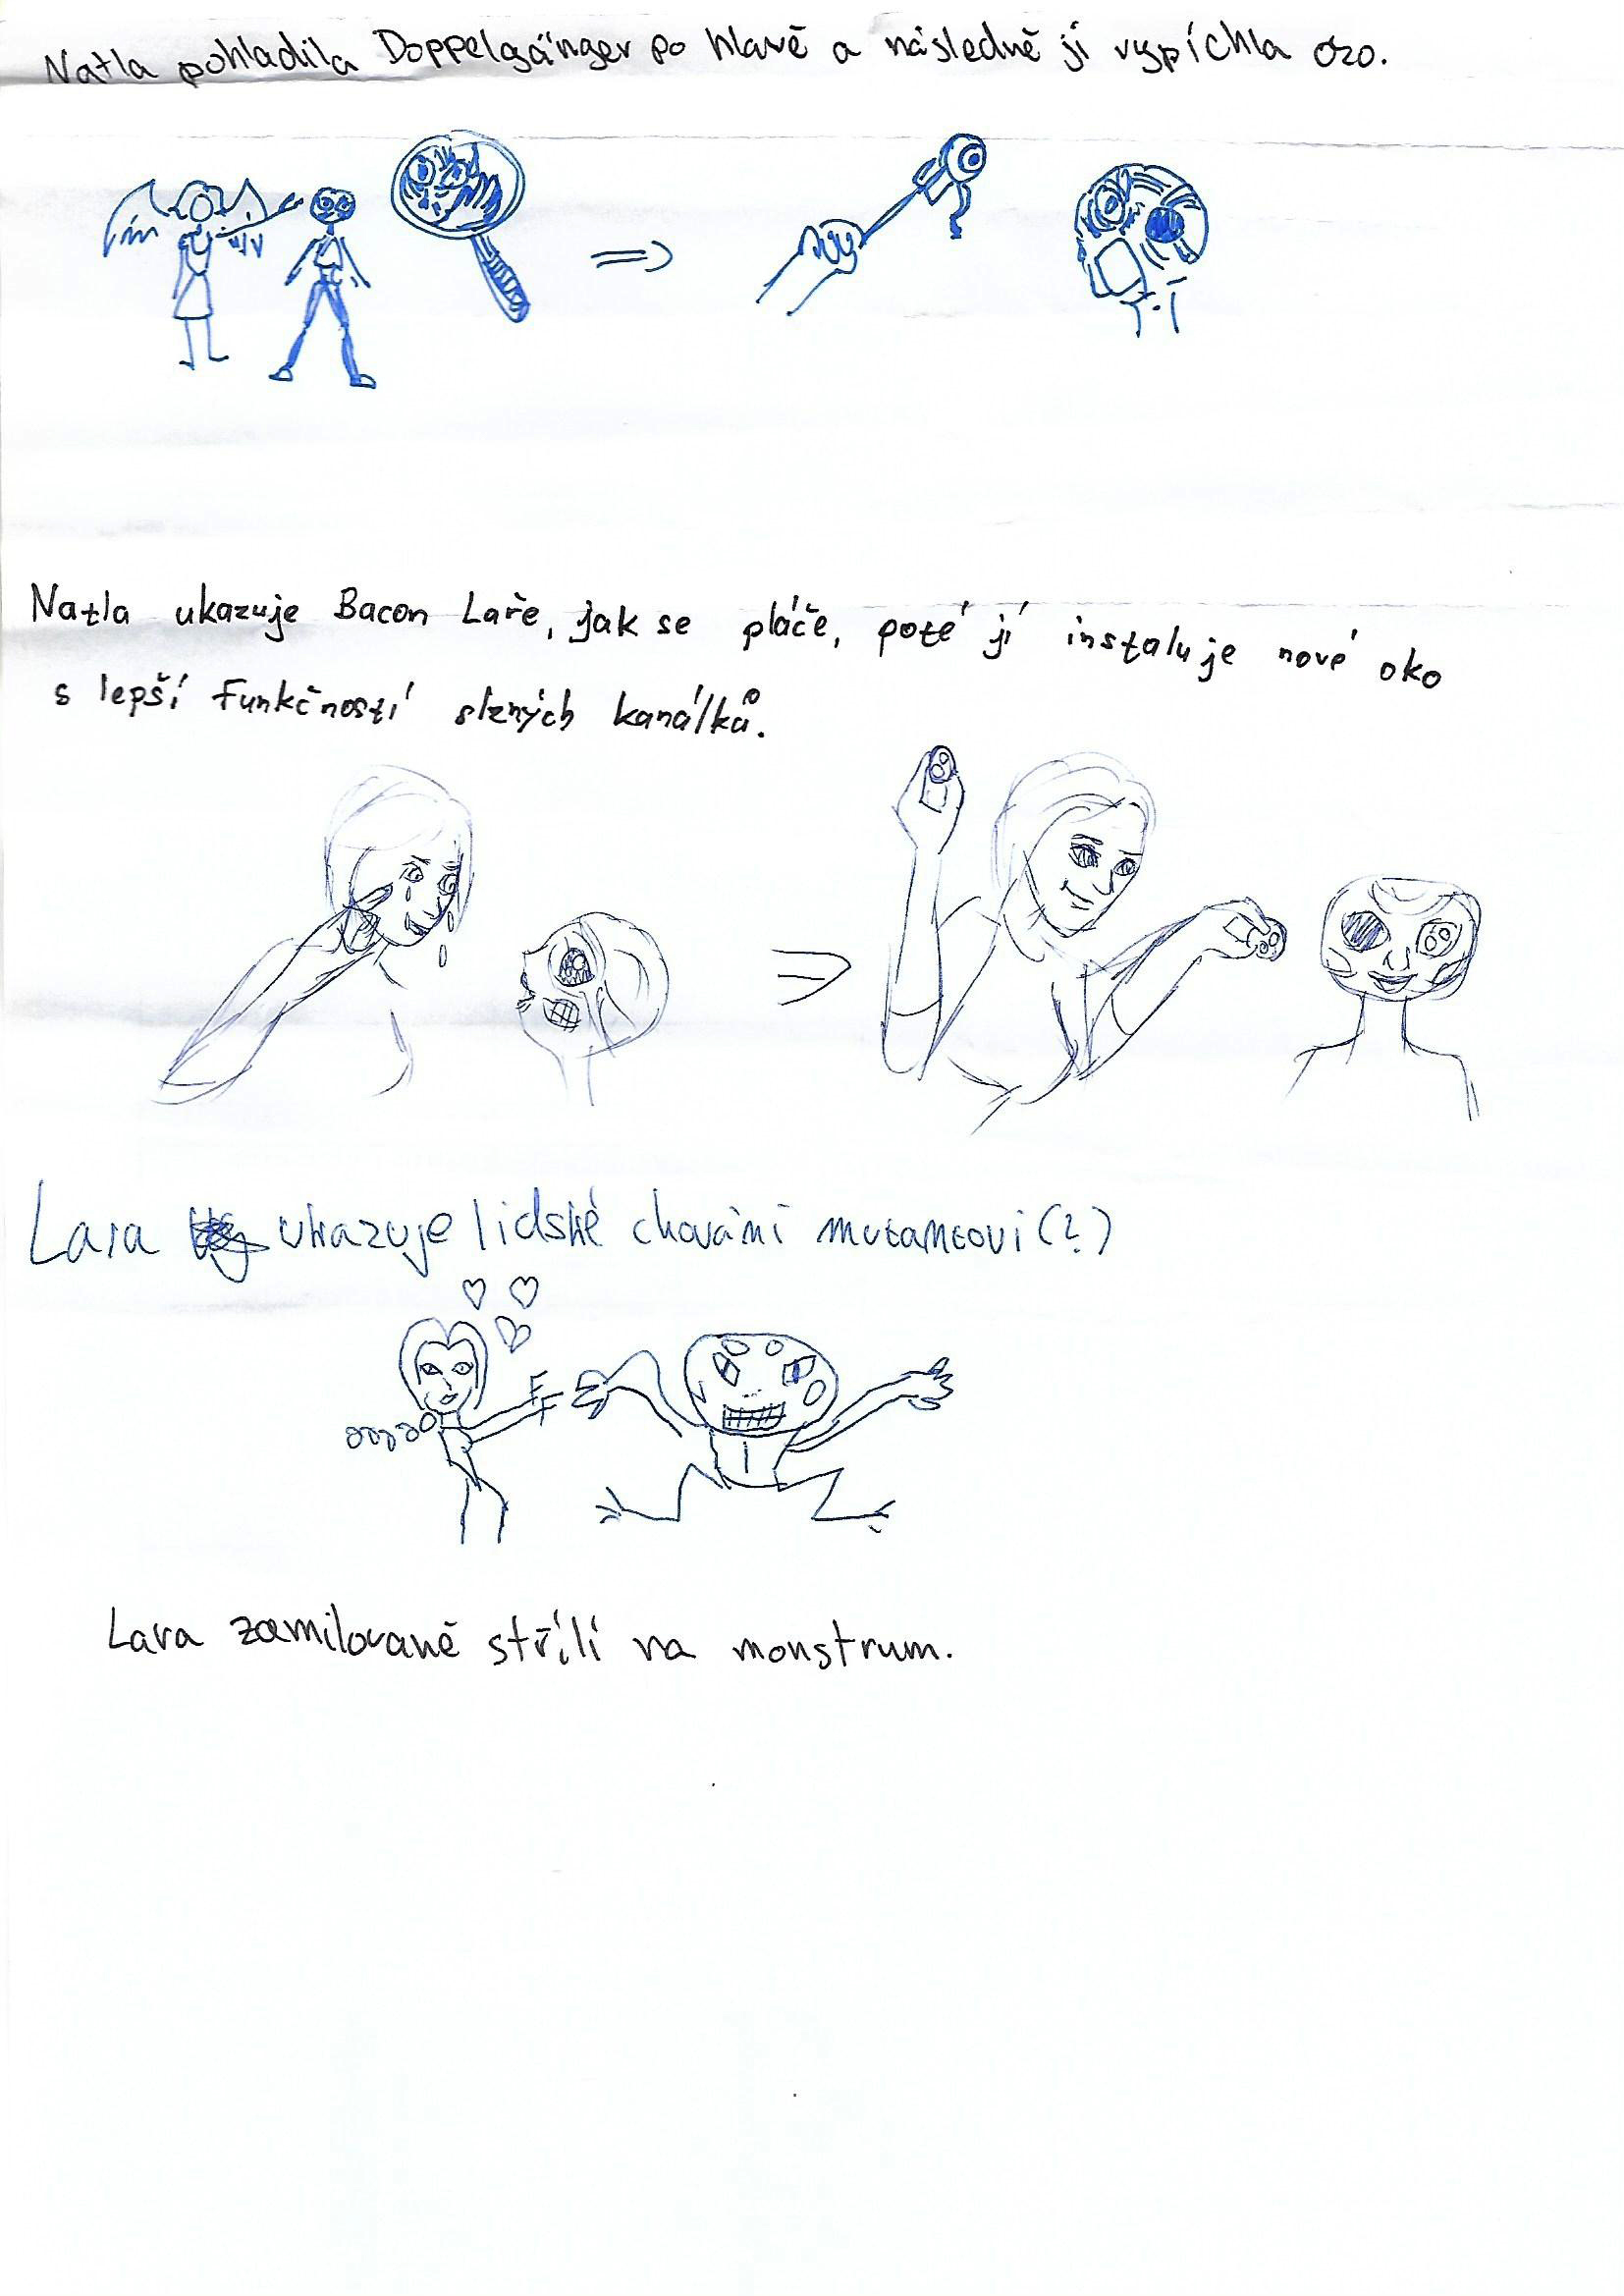 Natla pohladila Doppelgänger po hlavě a následně jí vypíchla oko.
Natla ukazuje Bacon Laře, jak se pláče, poté jí instaluje nové oko
s lepší funkčností slzných kanálků.
Lara ukazuje lidské chování mutantovi (?)
Lara zamilovaně střílí na monstrum.